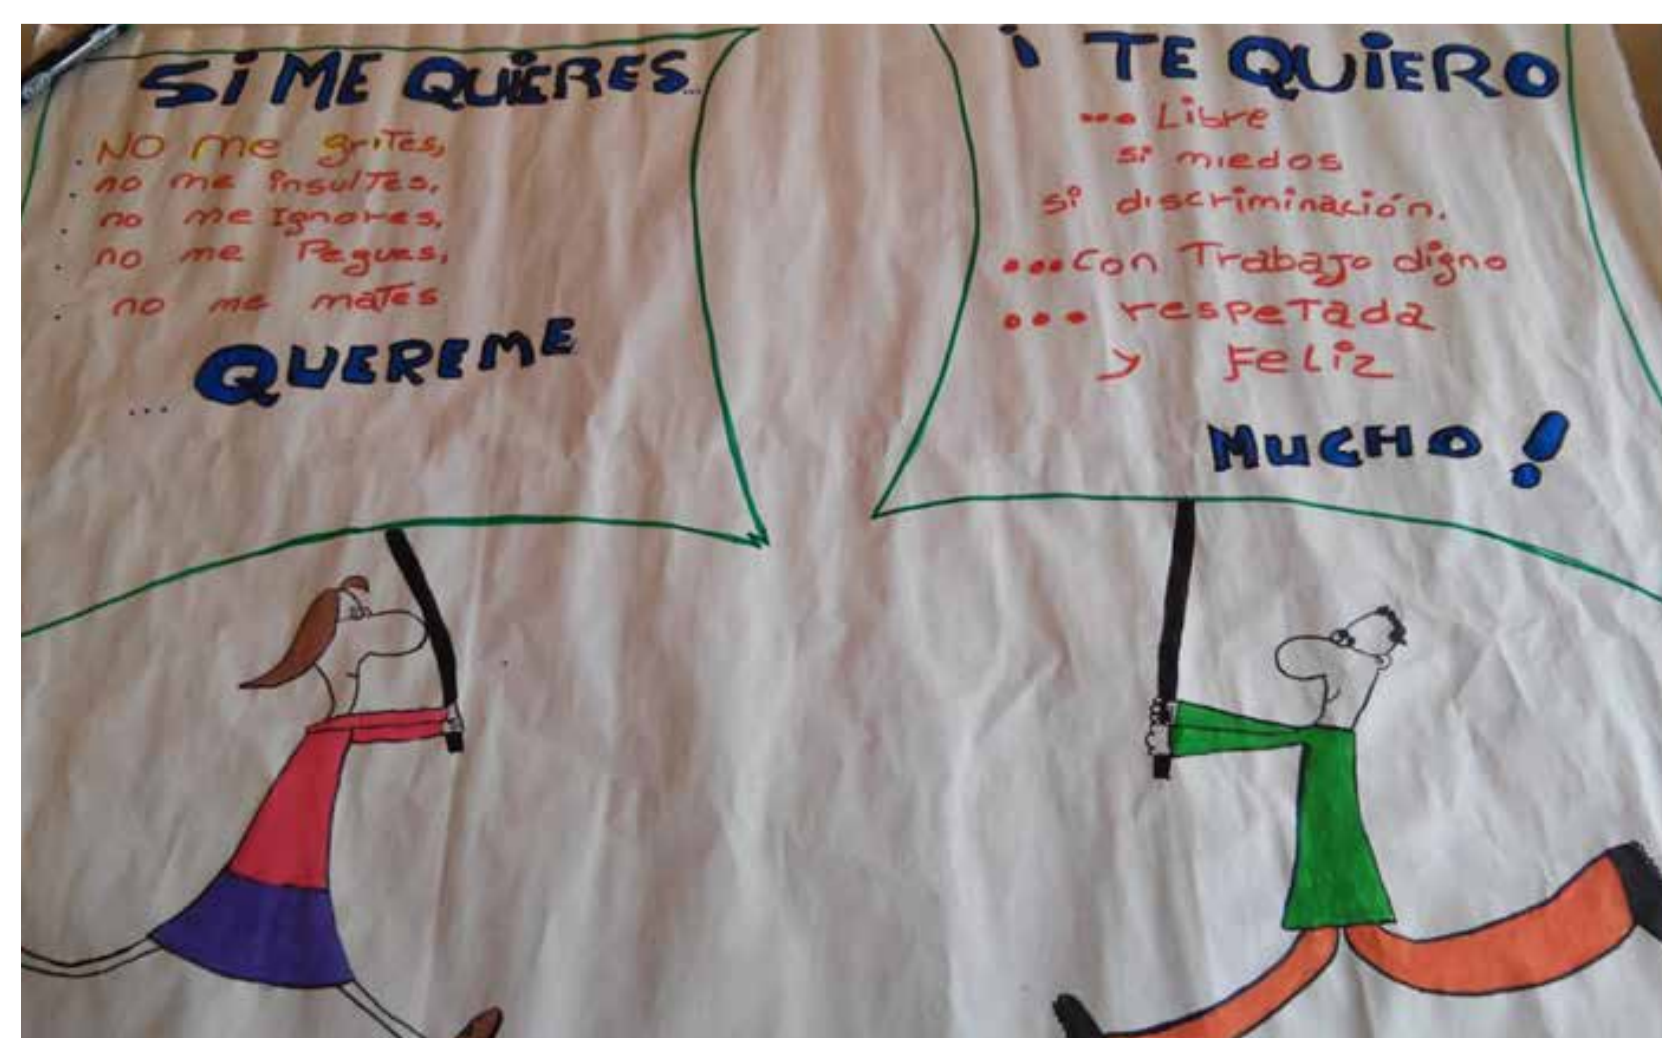 Si ME QUiERES...
. NO me griTes,
. no me insulTes,
. no me Ignores,
. no me Pegues,
. no me maTes
... QUEREME
¡ TE QUiERO
... Libre
si miedos
si discriminación.
...con Trabajo digno
... respeTada
y FeLiz
MUCHO!